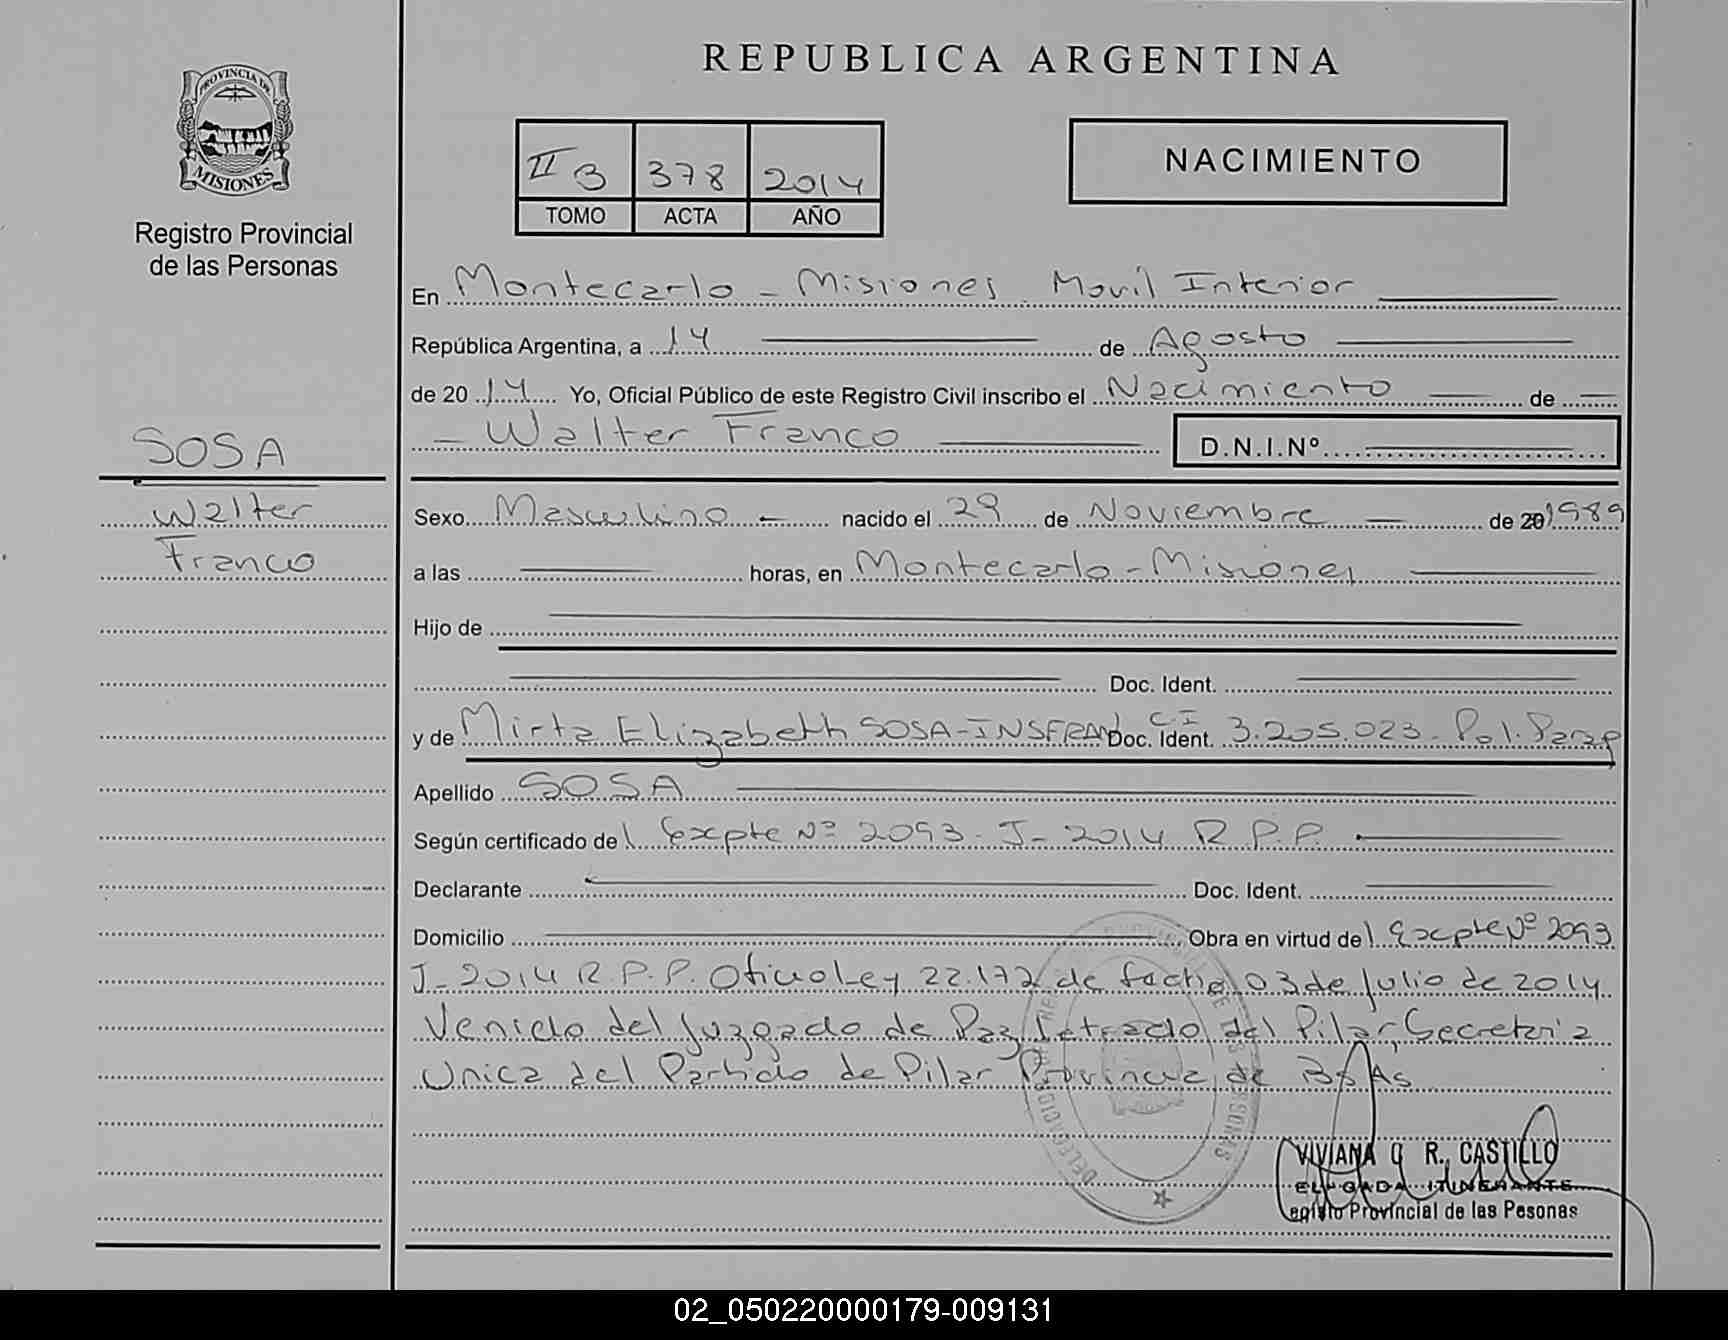 REPUBLICA ARGENTINA
PROVINCIA DE
MISIONES
Registro Provincial
de las Personas
II B 378 2014
TOMO ACTA AÑO
NACIMIENTO
En Montecarlo - Misiones Movil Interior
República Argentina, a 14 de Agosto
de 20 14 Yo, Oficial Público de este Registro Civil inscribo el Nacimiento de
Walter Franco D.N.I.Nº
SOSA
Walter
Franco
Sexo Masculino nacido el 29 de Noviembre de 20 1989
a las horas, en Montecarlo - Misiones
Hijo de
Doc. Ident.
y de Mirta Elizabeth SOSA-INSFRAN Doc. Ident. C.I 3.205.023 - Pol. Parag
Apellido SOSA
Según certificado de Expte Nº 2093 - J - 2014 R.P.P.
Declarante Doc. Ident.
Domicilio Obra en virtud de Expte Nº 2093
J - 2014 R.P.P. Oficio Ley 22.172 de fecha 03 de Julio de 2014
Venido del Juzgado de Paz Letrado del Pilar, Secretaria
Unica del Partido de Pilar Provincia de Bs As
VIVIANA R. CASTILLO
ITINERANTE
Provincial de las Pesonas
02_050220000179-009131